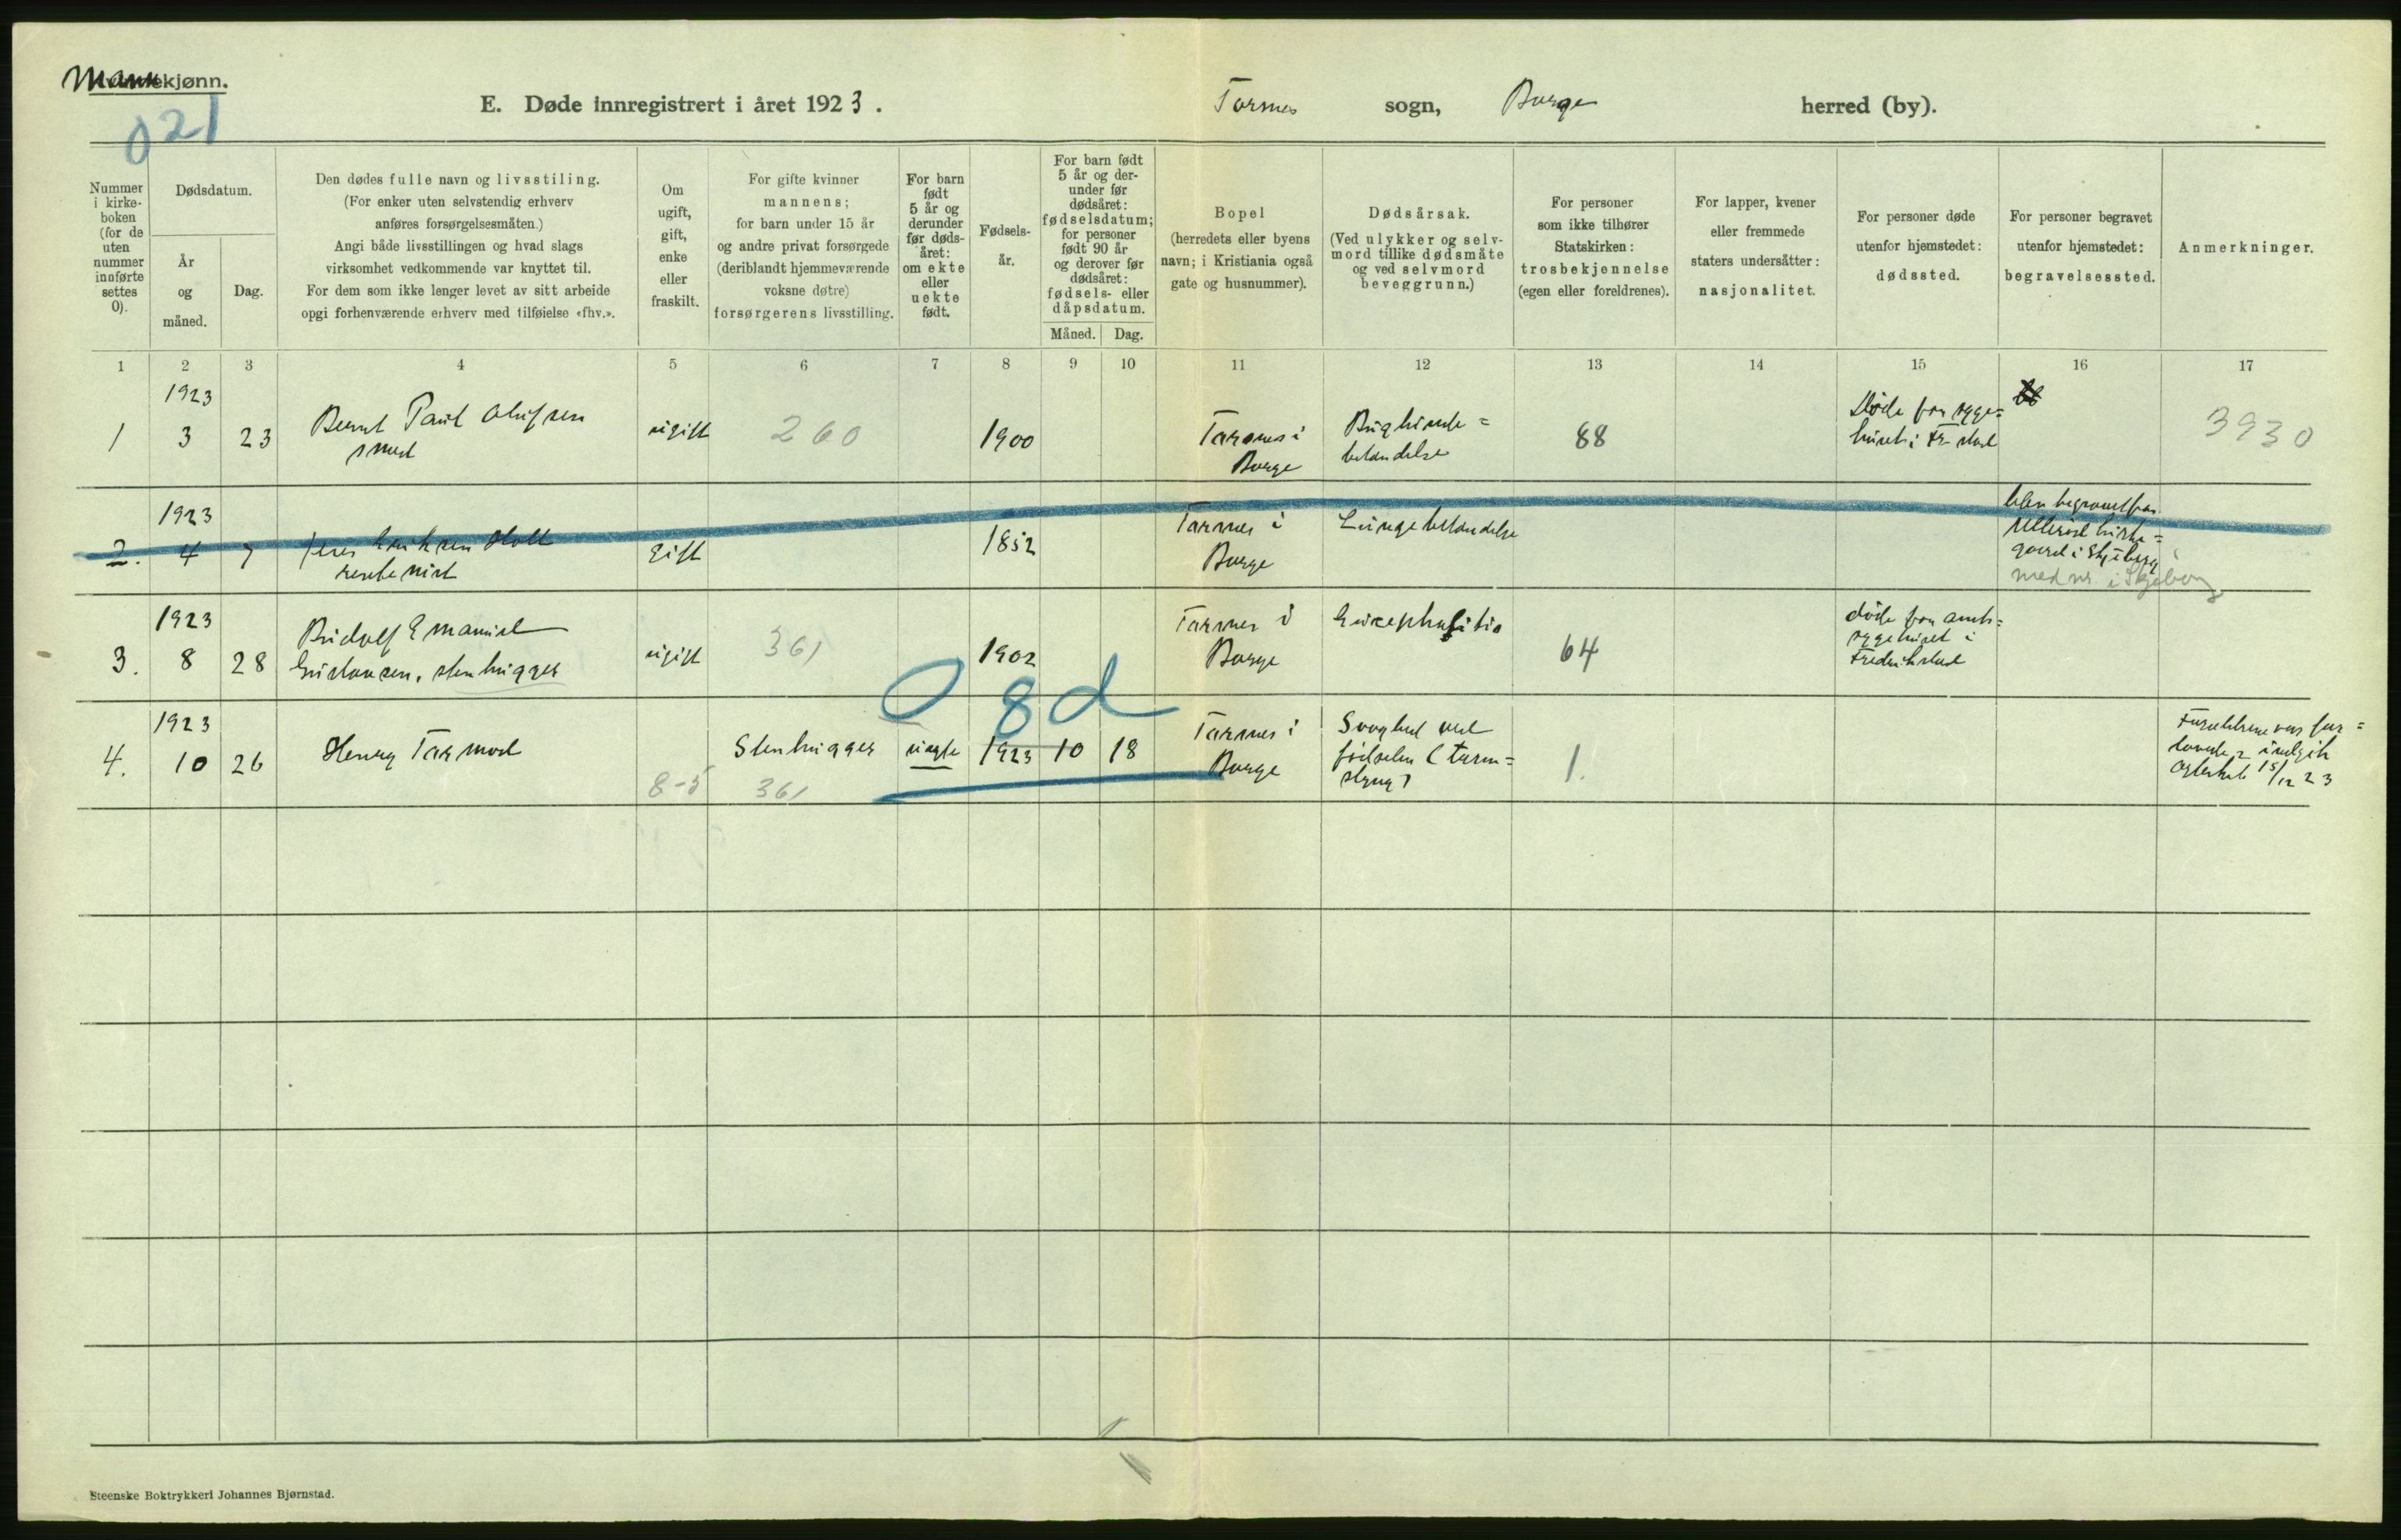 Mannekjønn.
021
E. Døde innregistrert i året 1923.
Torsnes sogn, Borge herred (by).
Nummer i kirkeboken (for de uten nummer innførte settes 0).
Dødsdatum.
År og måned.
Dag.
Den dødes fulle navn og livsstilling.
(For enker uten selvstendig erhverv
anføres forsørgelsesmåten.)
Angi både livsstillingen og hvad slags
virksomhet vedkommende var knyttet til.
For dem som ikke lenger levet av sitt arbeide
opgi forhenværende erhverv med tilføielse «fhv.».
Om ugift, gift, enke eller fraskilt.
For gifte kvinner
mannens;
for barn under 15 år
og andre privat forsørgede
(deriblandt hjemmeværende
voksne døtre)
forsørgerens livsstilling.
For barn født 5 år og derunder før dødsåret: om ekte eller uekte født.
Fødselsår.
For barn født 5 år og derunder før dødsåret: fødselsdatum; for personer født 90 år og derover før dødsåret: fødsels- eller dåpsdatum.
Måned. Dag.
Bopel
(herredets eller byens
navn; i Kristiania også
gate og husnummer).
Dødsårsak.
(Ved ulykker og selvmord tillike dødsmåte
og ved selvmord
beveggrunn.)
For personer
som ikke tilhører
Statskirken:
trosbekjennelse
(egen eller foreldrenes).
For lapper, kvener
eller fremmede
staters undersåtter:
nasjonalitet.
For personer døde
utenfor hjemstedet:
dødssted.
For personer begravet
utenfor hjemstedet:
begravelsessted.
Anmerkninger.
1 2 3 4 5 6 7 8 9 10 11 12 13 14 15 16 17
1923
1 3 23 Bernt Paul Olufsen ugift 260 1900 Torsnes i Borge Bughinde= betændelse 88 Døde paa syge= huset i Fr.stad 3930
smed
1923
2. 4 7 Jens Eriksen Holt gift 1852 Torsnes i Borge Lungebetændelse
rentenist
blev begravet paa
Ullerøi kirke=
gaard i Skjeberg
med nr i Skjeberg
1923
3. 8 28 Rudolf Emanuel ugift 361 1902 Torsnes i Borge Encephalitis 64
Gustavsen, stenhugger
døde paa amts=
sygehuset i
Fredrikstad
08d
1923
4. 10 26 Henry Tormod Stenhugger uegte 1923 10 18 Torsnes i Borge
8-5 361
Svaghed ved
fødselen (tarm=
slyng)
1.
Forældrene var for=
lovede, indgik
ægteskab 15/12 23
Steenske Boktrykkeri Johannes Bjørnstad.